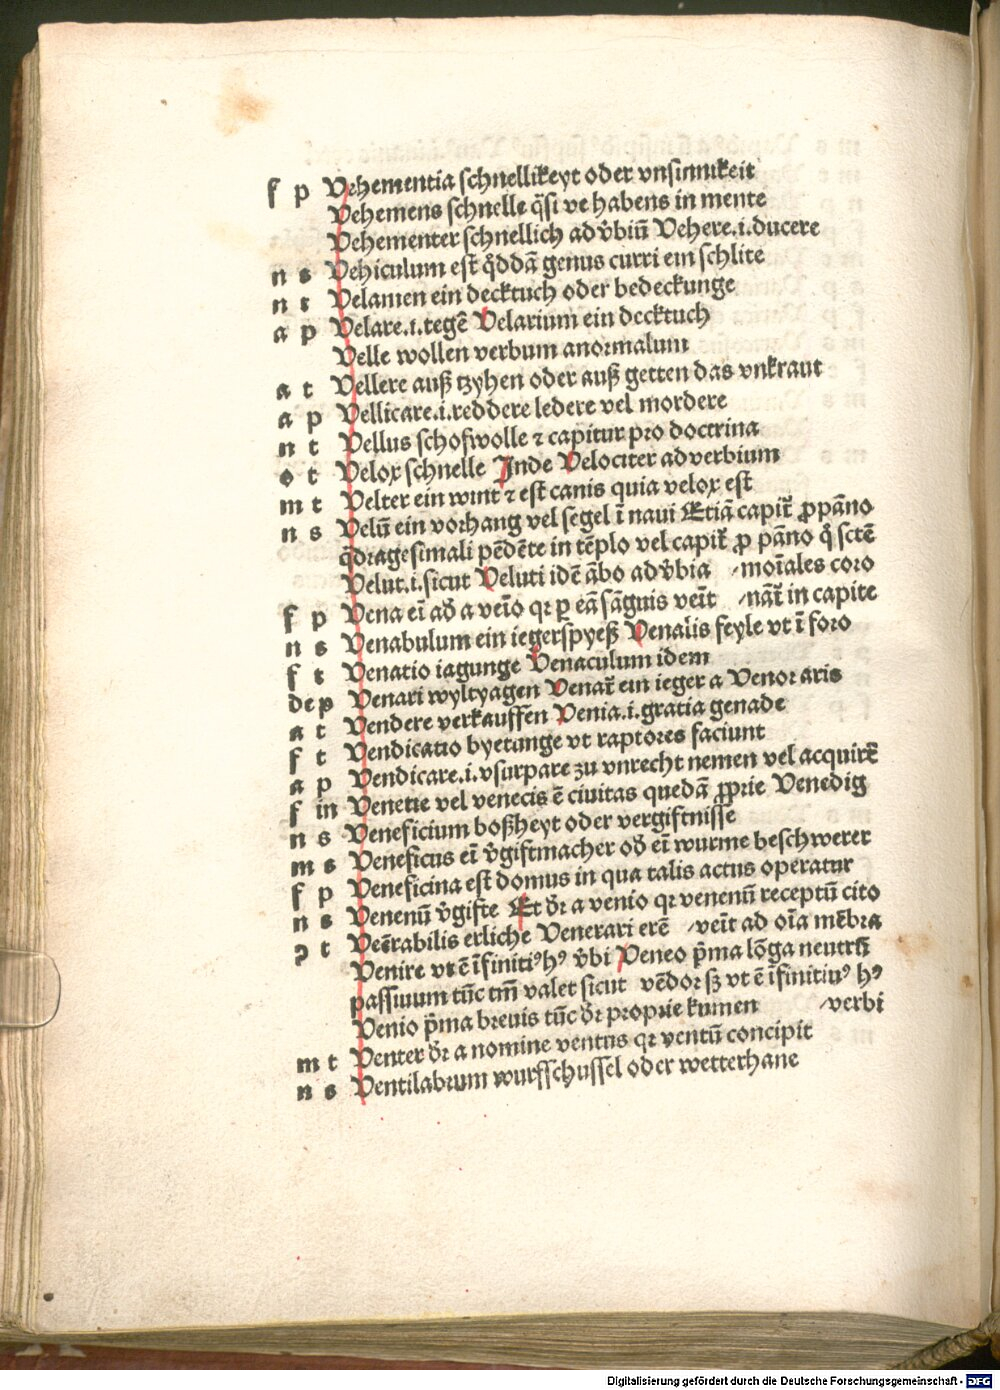 f p Vehementia schnellikeyt oder vnsinnikeit
Vehemens schnelle q̄si ve habens in mente
Vehementer schnellich adv̓biū Vehere.i.ducere
n s Vehiculum est q̊ddā genus curri ein schlite
n t Velamen ein decktuch oder bedeckunge
a p Velare.i.tegē Velarium ein decktuch
Velle wollen verbum anormalum
a t Vellere auß tzyhen oder auß getten das vnkraut
a p Vellicare.i.reddere ledere vel mordere
n t Vellus schofwolle ⁊ capitur pro doctrina
o t Velox schnelle Inde Velociter adverbium
m t Velter ein wint ⁊ est canis quia velox est
n s Velū ein vorhang vel segel ī naui Etiā capit̄ ꝓ pāno
q̈dragesimali pēdēte in tēplo vel capit̄ ꝓ pāno q̊ sctē
Velut.i.sicut Veluti idē ābo adv̓bia ⸝moīales coro
f p Vena eī ad̓ a veīo qꝛ ꝑ eā sāguis veīt ⸝nāt̄ in capite
n s Venabulum ein iegerspyeß Venalis feyle vt ī foro
f t Venatio iagunge Venaculum idem
dep Venari wyltyagen Venat̄ ein ieger a Venor aris
a t Vendere verkauffen Venia.i.gratia genade
f t Vendicatio byetunge vt raptores faciunt
a p Vendicare.i.vsurpare zu vnrecht nemen vel acquirē
f in Venetie vel venecis ē ciuitas quedā ꝓprie Venedig
n s Veneficium boßheyt oder vergiftnisse
m s Veneficus eī v̓giftmacher od̓ eī wurme beschwerer
f p Veneficina est domus in qua talis actus operatur
n s Venenū v̓gifte Et dr̄ a venio qꝛ venenū receptū cito
ꝯ t Veērabilis erliche Venerari erē ⸝veīt ad oīa mēbra
Venire vt ē īfinitiꝰ hꝰ v̓bi Veneo p̄ma lōga neutrū
passiuum tūc tm̄ valet sicut vēdor sꝫ vt ē īfinitiuꝰ hꝰ
Venio p̄ma breuis tūc dr̄ proprie kumen ⸝verbi
m t Venter dr̄ a nomine ventus qꝛ ventū concipit
n s Ventilabrum wurfschussel oder wetterhane
Digitalisierung gefördert durch die Deutsche Forschungsgemeinschaft - DFG